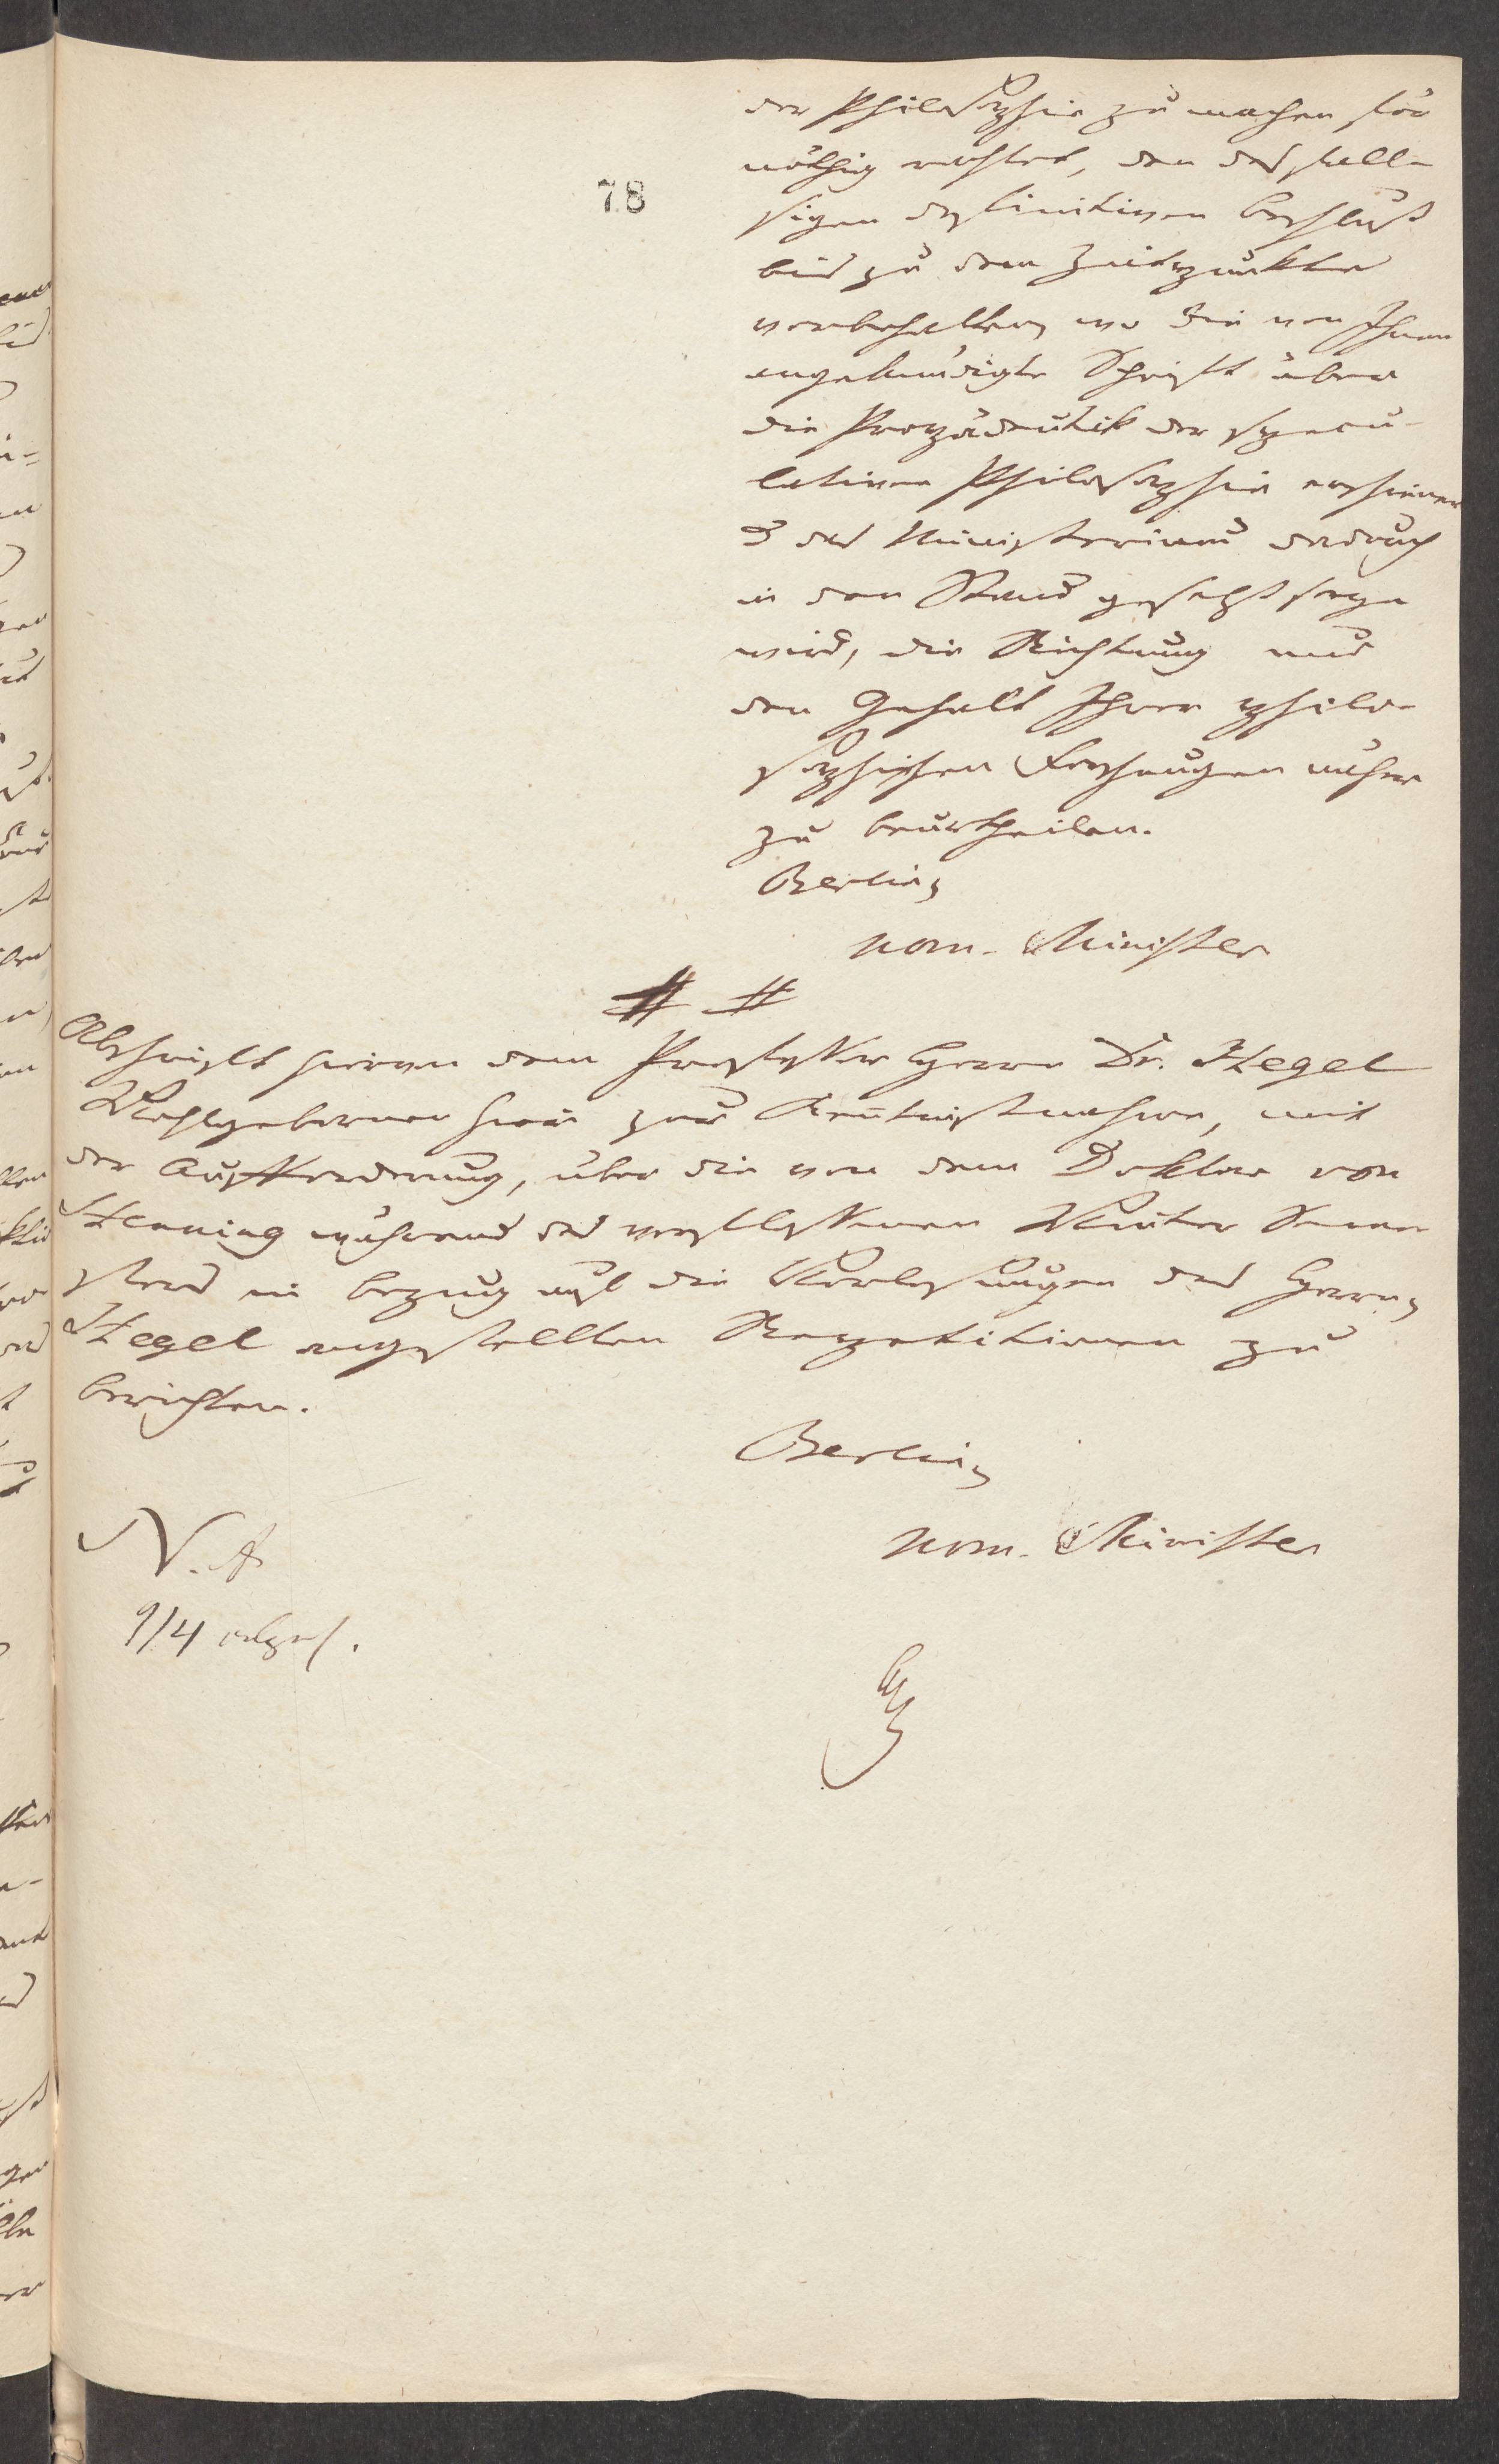 der Philosophie zu machen für
nöthig erachtet, den desfall-
sigen definitiven Beschluß
bis zu dem Zeitpunkte
vorbehalten, wo die von Ihnen
angekündigte Schrift über
die Propädeutik der specu-
lativen Philosophie erschienen
& das Ministerium dadurch
in den Stand gesetzt seyn
wird, die Richtung und
den Gehalt Ihrer philo-
sophischen Forschungen näher
zu beurtheilen.
Berlin,
nom. Minister
78
Abschrift hievon dem Professor Herrn Dr. Hegel
Wohlgeboren hier zur Kenntnißnahme, mit
der Aufforderung, über die von dem Doktor von
Henning während des verflossenen Winter Seme-
sters in Bezug auf die Vorlesungen des Herrn
Hegel angestellten Repetitionen zu
berichten.
Berlin,
nom. Minister
N. A
9/4 abges.